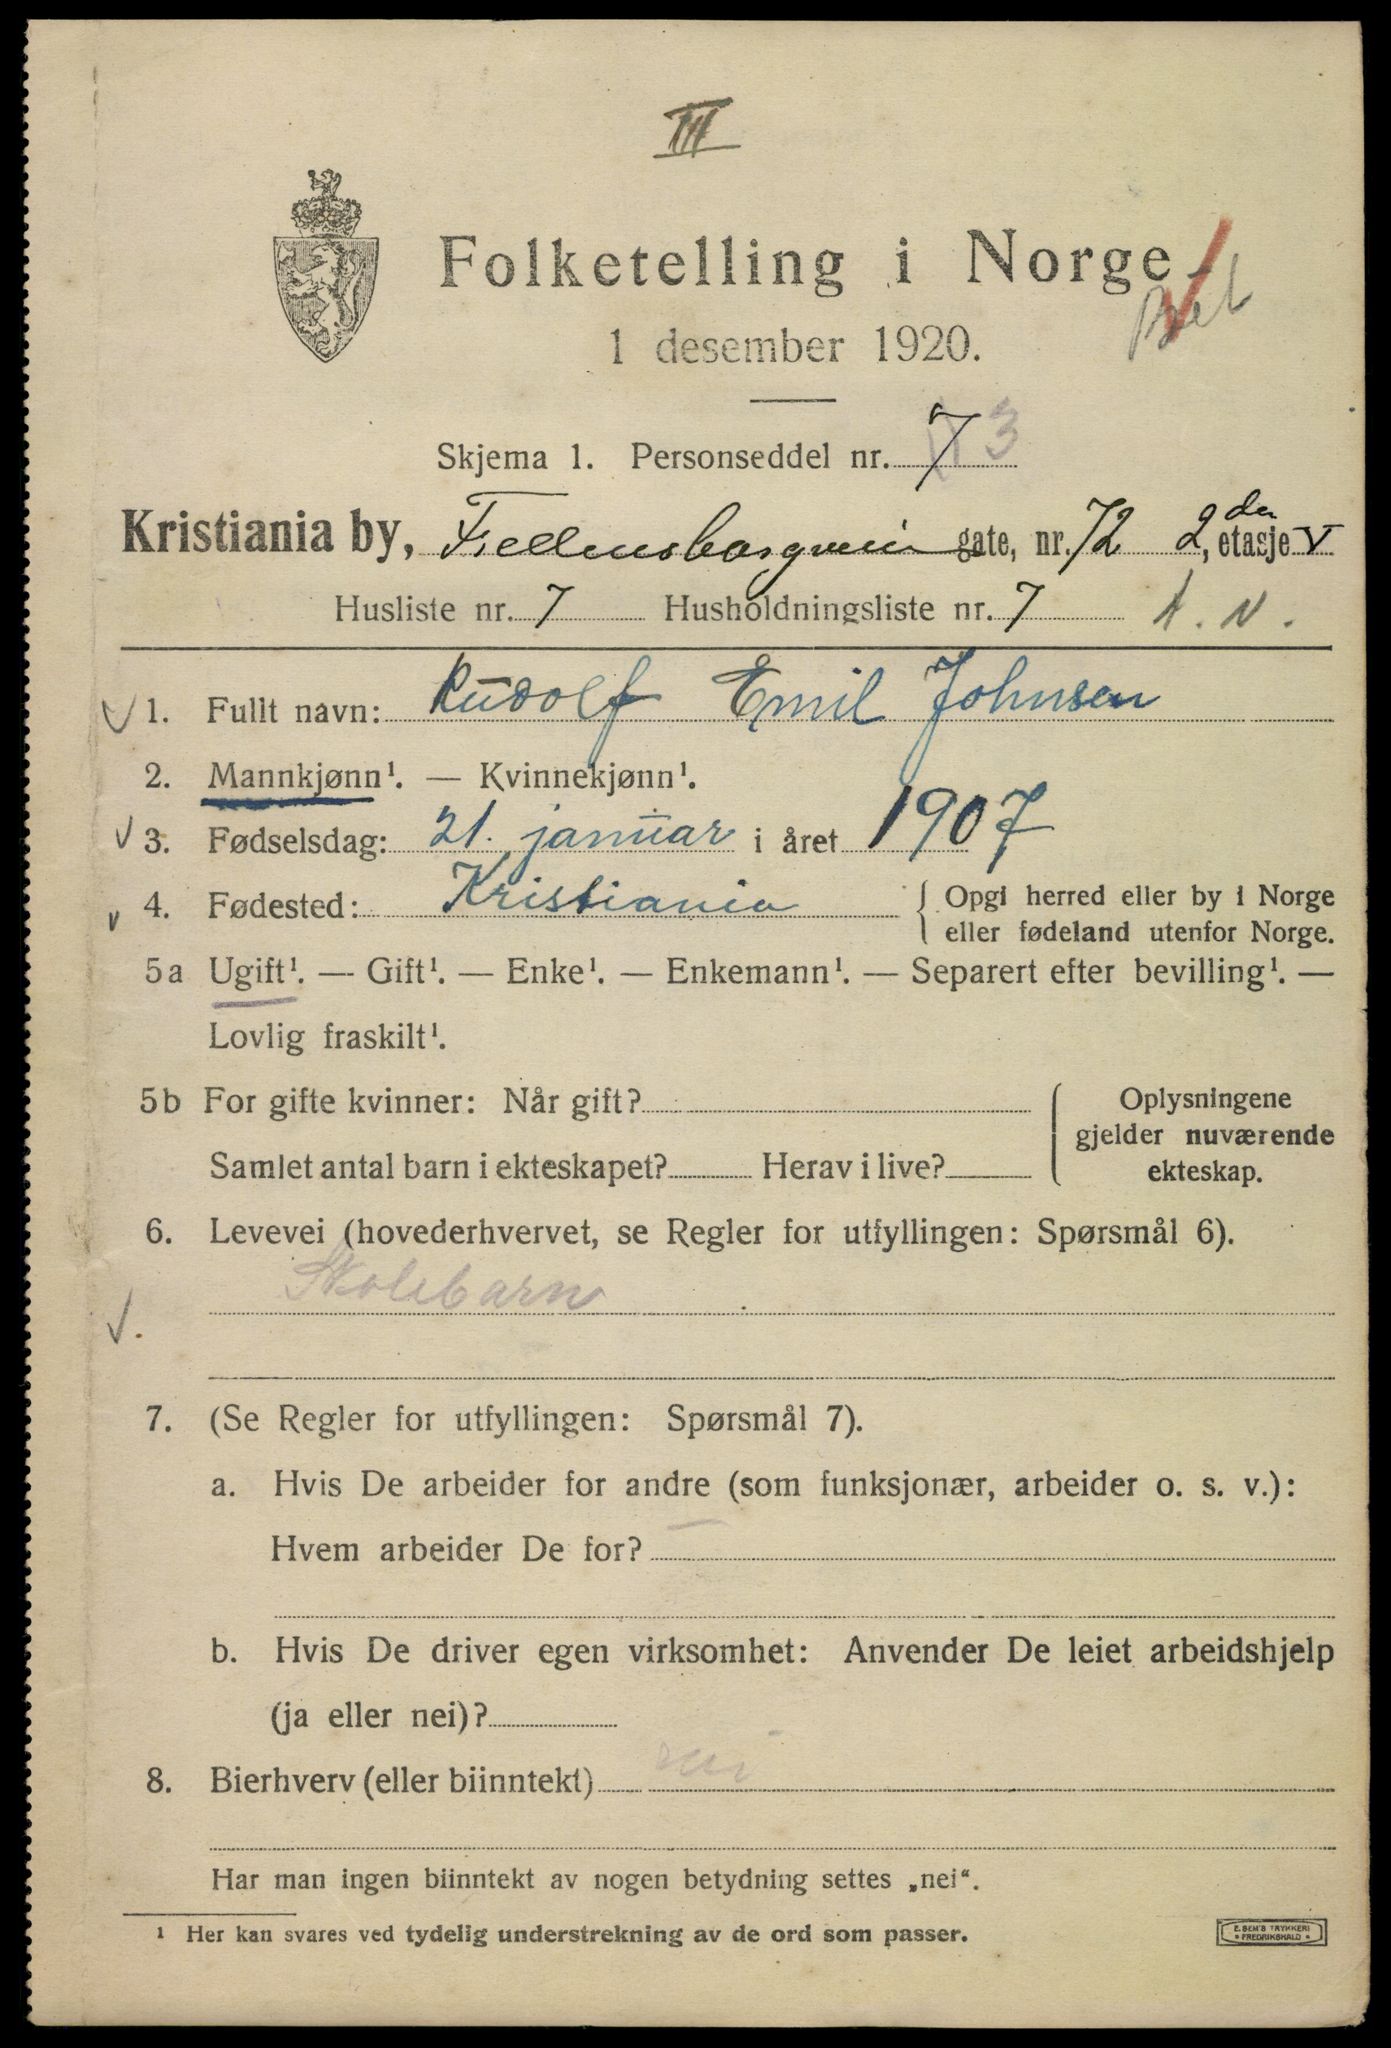 III
Folketelling i Norge
1 desember 1920.
Skjema 1. Personseddel nr. 7 3
Kristiania by, gate, nr. 72 2den, etasje V
Husliste nr. 7 Husholdningsliste nr. 7 A. V.
1. Fullt navn: Rudolf Emil Johnsen
2. Mannkjønn¹. — Kvinnekjønn¹.
3. Fødselsdag: 21. januar i året 1907
4. Fødested: Kristiania { Opgi herred eller by i Norge
eller fødeland utenfor Norge.
5a Ugift¹. — Gift¹. — Enke¹. — Enkemann¹. — Separert efter bevilling¹. —
Lovlig fraskilt¹.
5b For gifte kvinner: Når gift? { Oplysningene
gjelder nuværende
Samlet antal barn i ekteskapet? Herav i live? ekteskap.
6. Levevei (hovederhvervet, se Regler for utfyllingen: Spørsmål 6).
Skolebarn
7. (Se Regler for utfyllingen: Spørsmål 7).
a. Hvis De arbeider for andre (som funksjonær, arbeider o. s. v.):
Hvem arbeider De for?
b. Hvis De driver egen virksomhet: Anvender De leiet arbeidshjelp
(ja eller nei)?
8. Bierhverv (eller biinntekt) nei
Har man ingen biinntekt av nogen betydning settes „nei“.
¹ Her kan svares ved tydelig understrekning av de ord som passer.
E. SEM'S TRYKKERI
FREDRIKSHALD